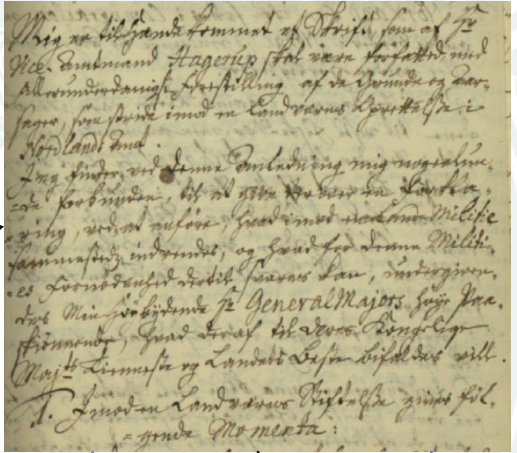 Mig er tilhænde kommet et Skrift, som af Hr
Vice Amtmand Hagerup skal være forfatted med
Allerunderdanigst Forestilling af de Grunde og Aar-
sager, som stride imod en Landværns Oprettelse i
Nordlands Amt.
Jeg finder ved denne Anledning mig
forbunden, til at give en Forkla-
ring, ved at anføre, hvad imod Land Militie
sammesteds indvendes, og hvad for denne Militi-
es Fornødenhed dertil svares kan, undergiven-
des Min Høybydende Hr General Majors høye Paa-
skiønnende, hvad deraf til Deres Kongelige
Majts Tienneste og Landets Beste bifaldes vill.
1. Imod en Landværns Stiftelse gives føl-
gende Momenta: